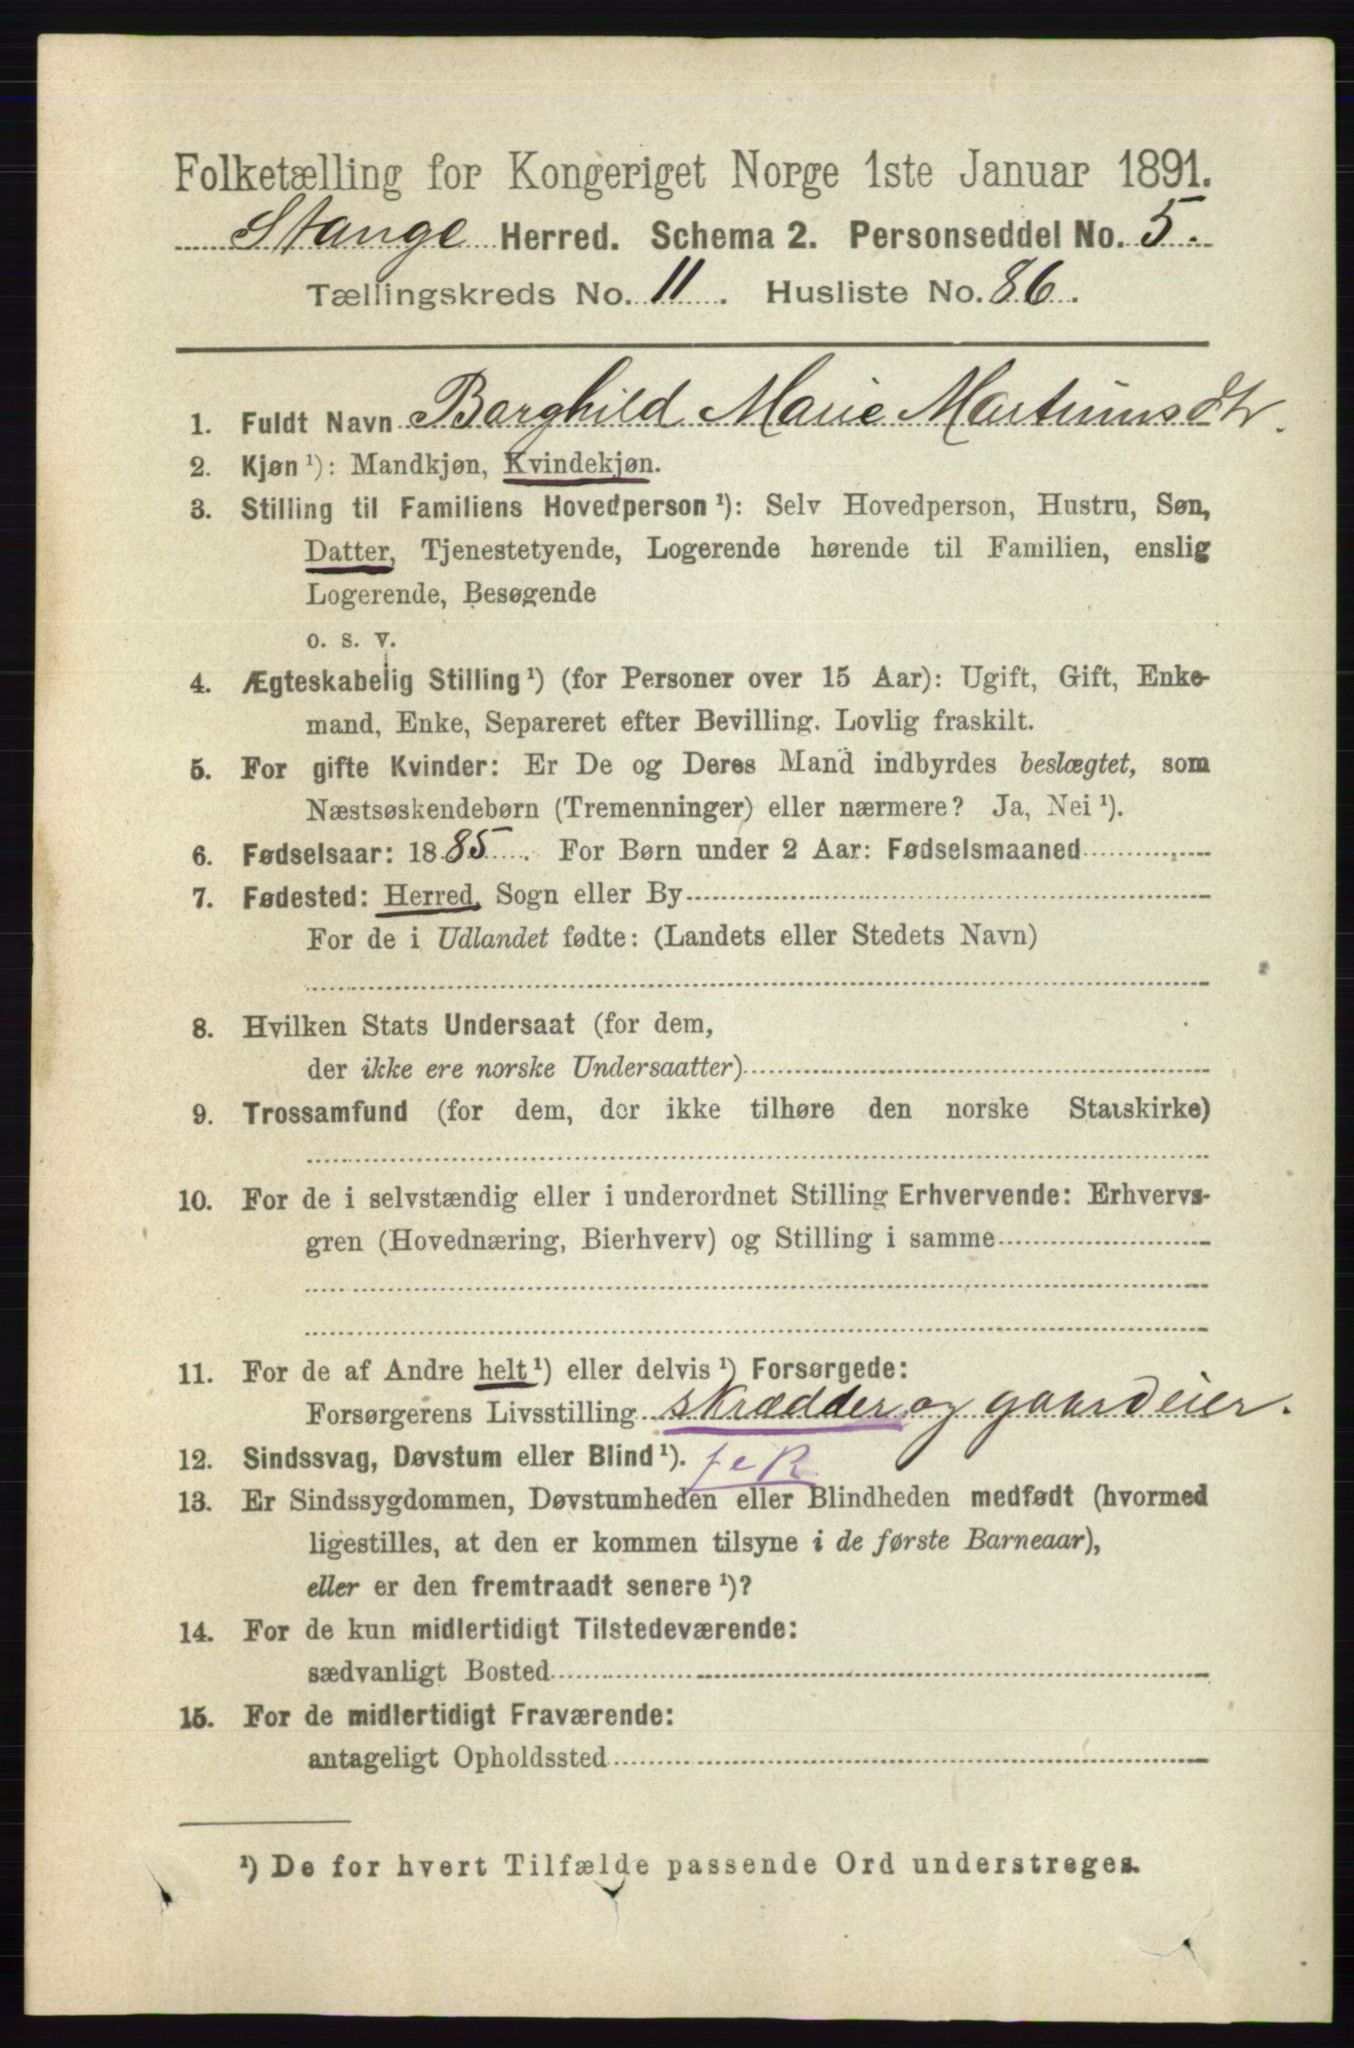 Folketælling for Kongeriget Norge 1ste Januar 1891.
Stange Herred. Schema 2. Personseddel No. 5.
Tællingskreds No. 11. Husliste No. 86.
1. Fuldt Navn Borghild Marie Martinusdtr.
2. Kjøn ¹): Mandkjøn, Kvindekjøn.
3. Stilling til Familiens Hovedperson ¹): Selv Hovedperson, Hustru, Søn,
Datter, Tjenestetyende, Logerende hørende til Familien, enslig
Logerende, Besøgende
o. s. v.
4. Ægteskabelig Stilling ¹) (for Personer over 15 Aar): Ugift, Gift, Enke-
mand, Enke, Separeret efter Bevilling. Lovlig fraskilt.
5. For gifte Kvinder: Er De og Deres Mand indbyrdes beslægtet, som
Næstsøskendebørn (Tremenninger) eller nærmere? Ja, Nei ¹).
6. Fødselsaar: 1885. For Børn under 2 Aar: Fødselsmaaned
7. Fødested: Herred, Sogn eller By
For de i Udlandet fødte: (Landets eller Stedets Navn)
8. Hvilken Stats Undersaat (for dem,
der ikke ere norske Undersaatter)
9. Trossamfund (for dem, der ikke tilhøre den norske Statskirke)
10. For de i selvstændig eller i underordnet Stilling Erhvervende: Erhvervs-
gren (Hovednæring, Bierhverv) og Stilling i samme
11. For de af Andre helt ¹) eller delvis ¹) Forsørgede:
Forsørgerens Livsstilling skrædder og gaardeier.
12. Sindssvag, Døvstum eller Blind ¹).
13. Er Sindssygdommen, Døvstumheden eller Blindheden medfødt (hvormed
ligestilles, at den er kommen tilsyne i de første Barneaar),
eller er den fremtraadt senere ¹)?
14. For de kun midlertidigt Tilstedeværende:
sædvanligt Bosted
15. For de midlertidigt Fraværende:
antageligt Opholdssted
¹) De for hvert Tilfælde passende Ord understreges.